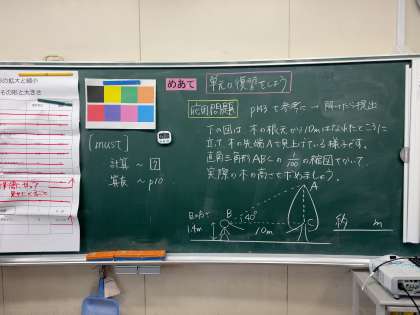 形の拡大と縮小
その形と大きさ
めあて 単元の復習をしよう
応用問題 p113を参考に → 解けたら提出
[must]
計算 ~ 7
算友 ~ p10
下の図は、木の根元から10mはなれたところに
立って、木の先端Aを見上げている様子です。
直角三角形ABCの 1/200 の縮図をかいて、
実際の木の高さを求めましょう。
A
B
40°
C
1.4m
10m
約 m